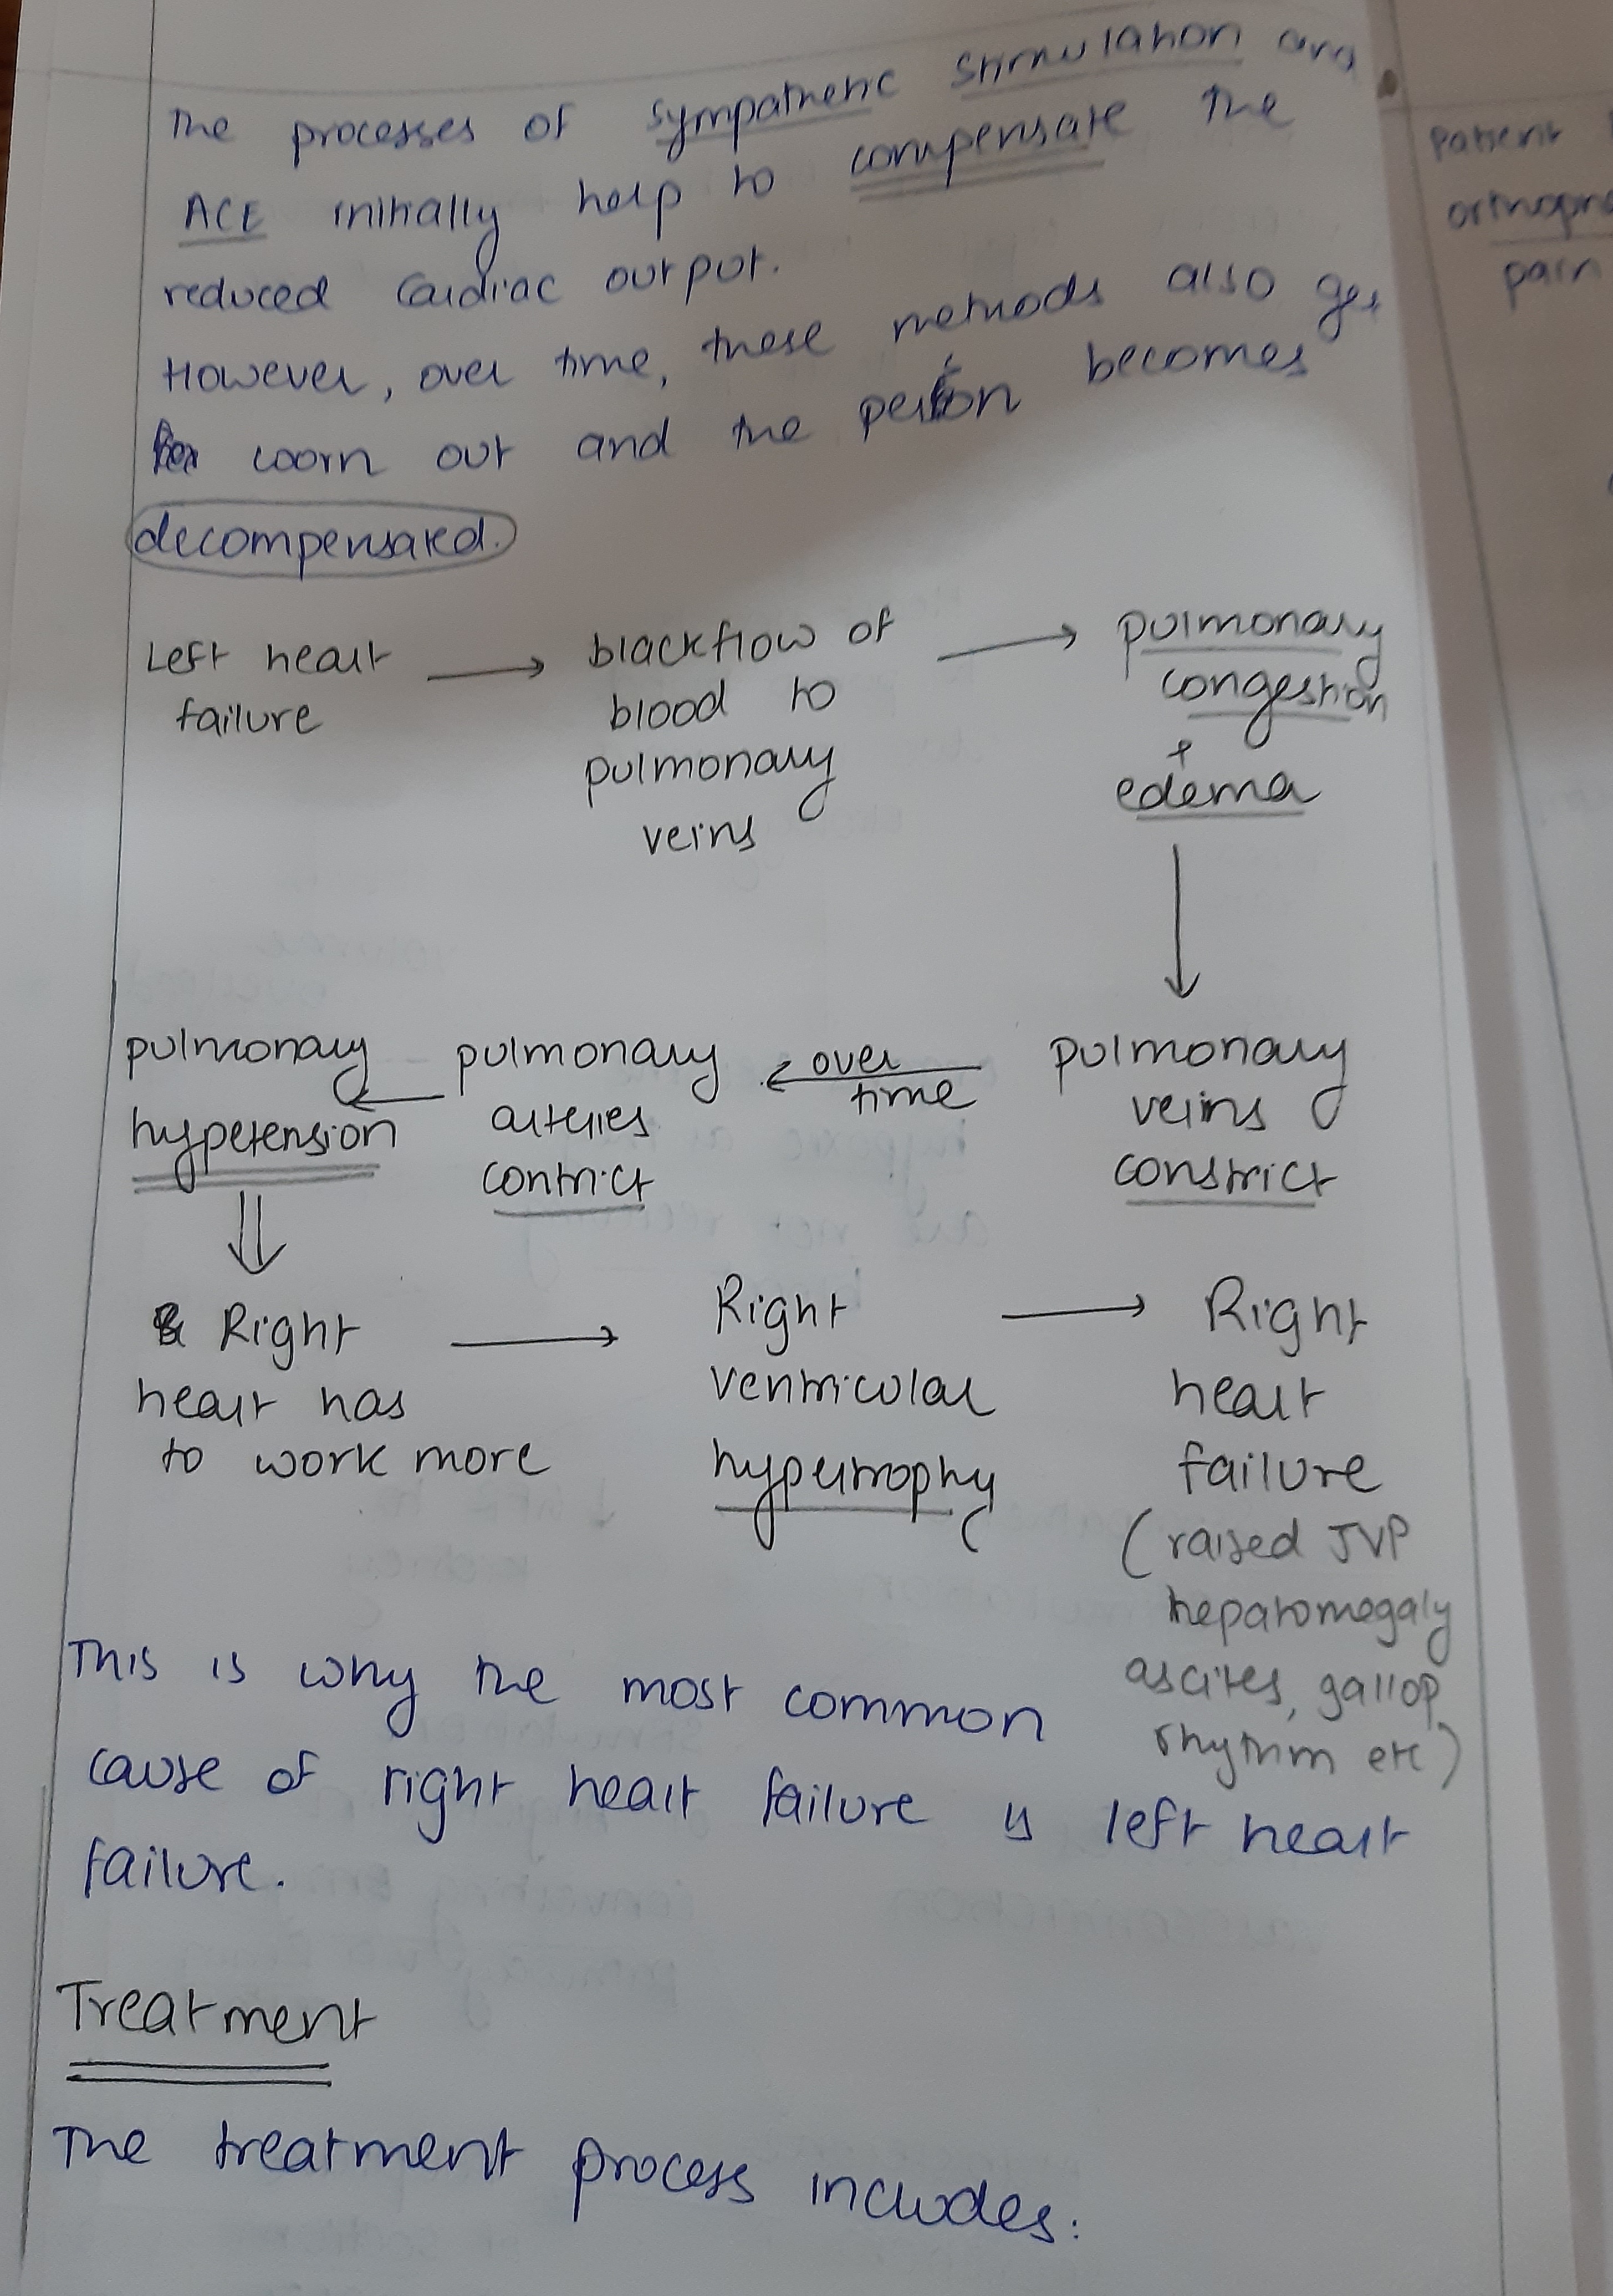 The processes of sympathetic stimulation and
ACE initially help to compensate the
reduced cardiac output.
However, over time, these methods also get
worn out and the person becomes
decompensated.
Left heart
failure
blackflow of
blood to
pulmonary
veins
pulmonary
congestion
+
edema
pulmonary
veins
constrict
over
time
pulmonary
arteries
contrict
pulmonary
hypetension
Right
heart has
to work more
Right
ventricular
hypertrophy
Right
heart
failure
(raised JVP
hepatomegaly
ascites, gallop
rhythm etc)
This is why the most common
cause of right heart failure is left heart
failure.
Treatment
The treatment process includes:
Patient
pain